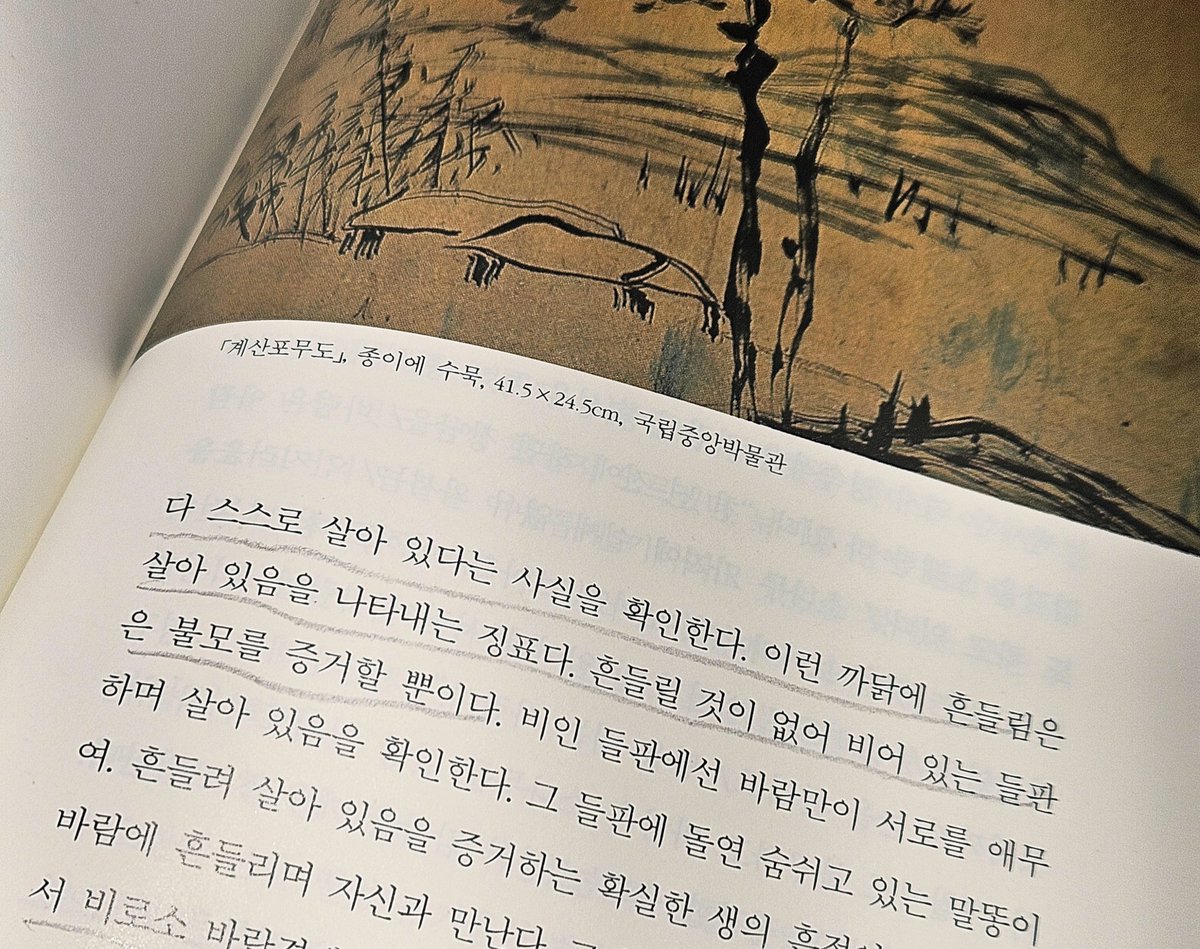 「계산포무도」, 종이에 수묵, 41.5×24.5cm, 국립중앙박물관
다 스스로 살아 있다는 사실을 확인한다. 이런 까닭에 흔들림은
살아 있음을 나타내는 징표다. 흔들릴 것이 없어 비어 있는 들판
은 불모를 증거할 뿐이다. 비인 들판에선 바람만이 서로를 애무
하며 살아 있음을 확인한다. 그 들판에 돌연 숨쉬고 있는 말똥이
여. 흔들려 살아 있음을 증거하는 확실한 생의 흔적
바람에 흔들리며 자신과 만난다.
서 비로소